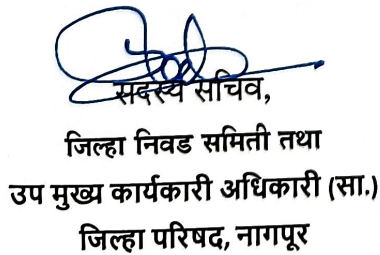 सदस्य सचिव,
जिल्हा निवड समिती तथा
उप मुख्य कार्यकारी अधिकारी (सा.)
जिल्हा परिषद, नागपूर